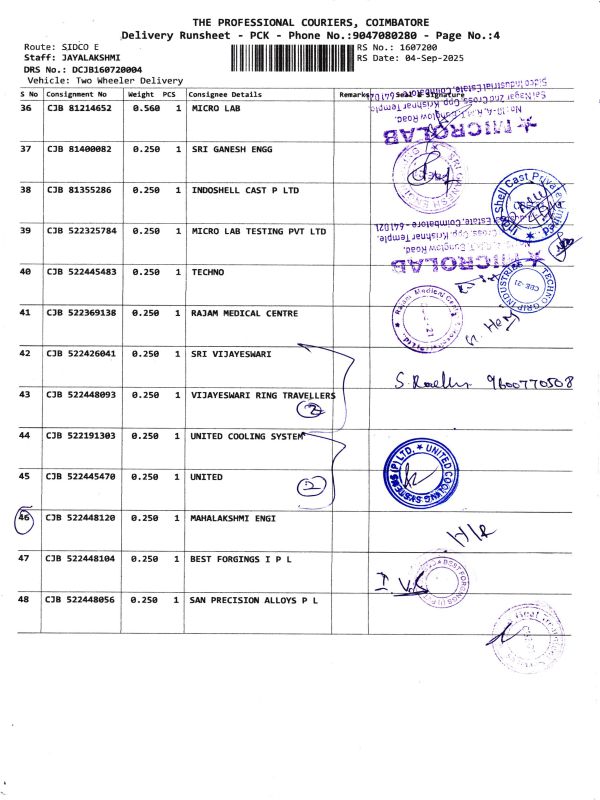 THE PROFESSIONAL COURIERS, COIMBATORE
Delivery Runsheet - PCK - Phone No.:9047080280 - Page No.:4
Route: SIDCO E RS No.: 1607200
Staff: JAYALAKSHMI RS Date: 04-Sep-2025
DRS No.: DCJB160720004
Vehicle: Two Wheeler Delivery
S No Consignment No Weight PCS Consignee Details Remarks Seal & Signature
36 CJB 81214652 0.560 1 MICRO LAB
MICROLAB
37 CJB 81400082 0.250 1 SRI GANESH ENGG
38 CJB 81355286 0.250 1 INDOSHELL CAST P LTD
39 CJB 522325784 0.250 1 MICRO LAB TESTING PVT LTD
MICROLAB
40 CJB 522445483 0.250 1 TECHNO
41 CJB 522369138 0.250 1 RAJAM MEDICAL CENTRE
42 CJB 522426041 0.250 1 SRI VIJAYESWARI
9600770508
43 CJB 522448093 0.250 1 VIJAYESWARI RING TRAVELLERS
2
44 CJB 522191303 0.250 1 UNITED COOLING SYSTEM
UNITED COOLING SYSTEMS (P) LTD.
45 CJB 522445470 0.250 1 UNITED
2
46 CJB 522448120 0.250 1 MAHALAKSHMI ENGI
47 CJB 522448104 0.250 1 BEST FORGINGS I P L
48 CJB 522448056 0.250 1 SAN PRECISION ALLOYS P L